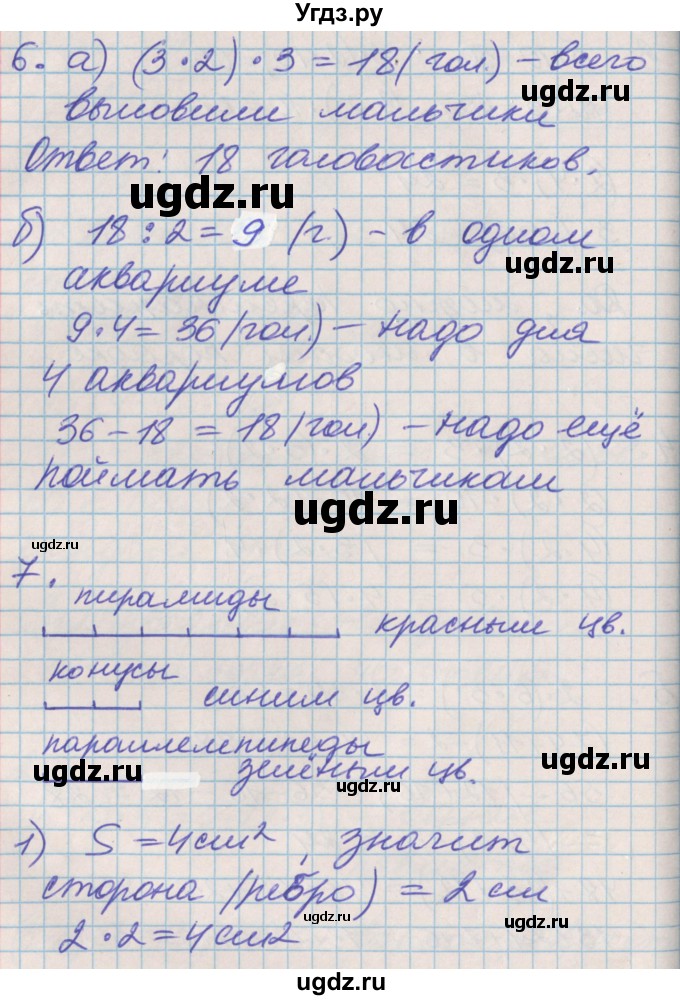 Угдз.ру
6. а) (3·2)·3=18(гол.) – всего
ugdz.ru
выловили мальчики
Ответ: 18 головастиков.
ugdz.ru
б) 18:2=9 (г.) – в одном
ugdz.ru
аквариуме
9·4=36(гол.) – надо для
ugdz.ru
4 аквариумов
36–18=18(гол) – надо ещё
ugdz.ru
поймать мальчикам
ugdz.ru
ugdz.ru
7.
пирамиды
красным цв.
конусы
синим цв.
параллелепипеды
ugdz.ru
ugdz.ru
зелёным цв.
ugdz.ru
1) S=4см², значит
сторона (ребро) = 2 см
ugdz.ru
ugdz.ru
2·2=4см2
ugdz.ru